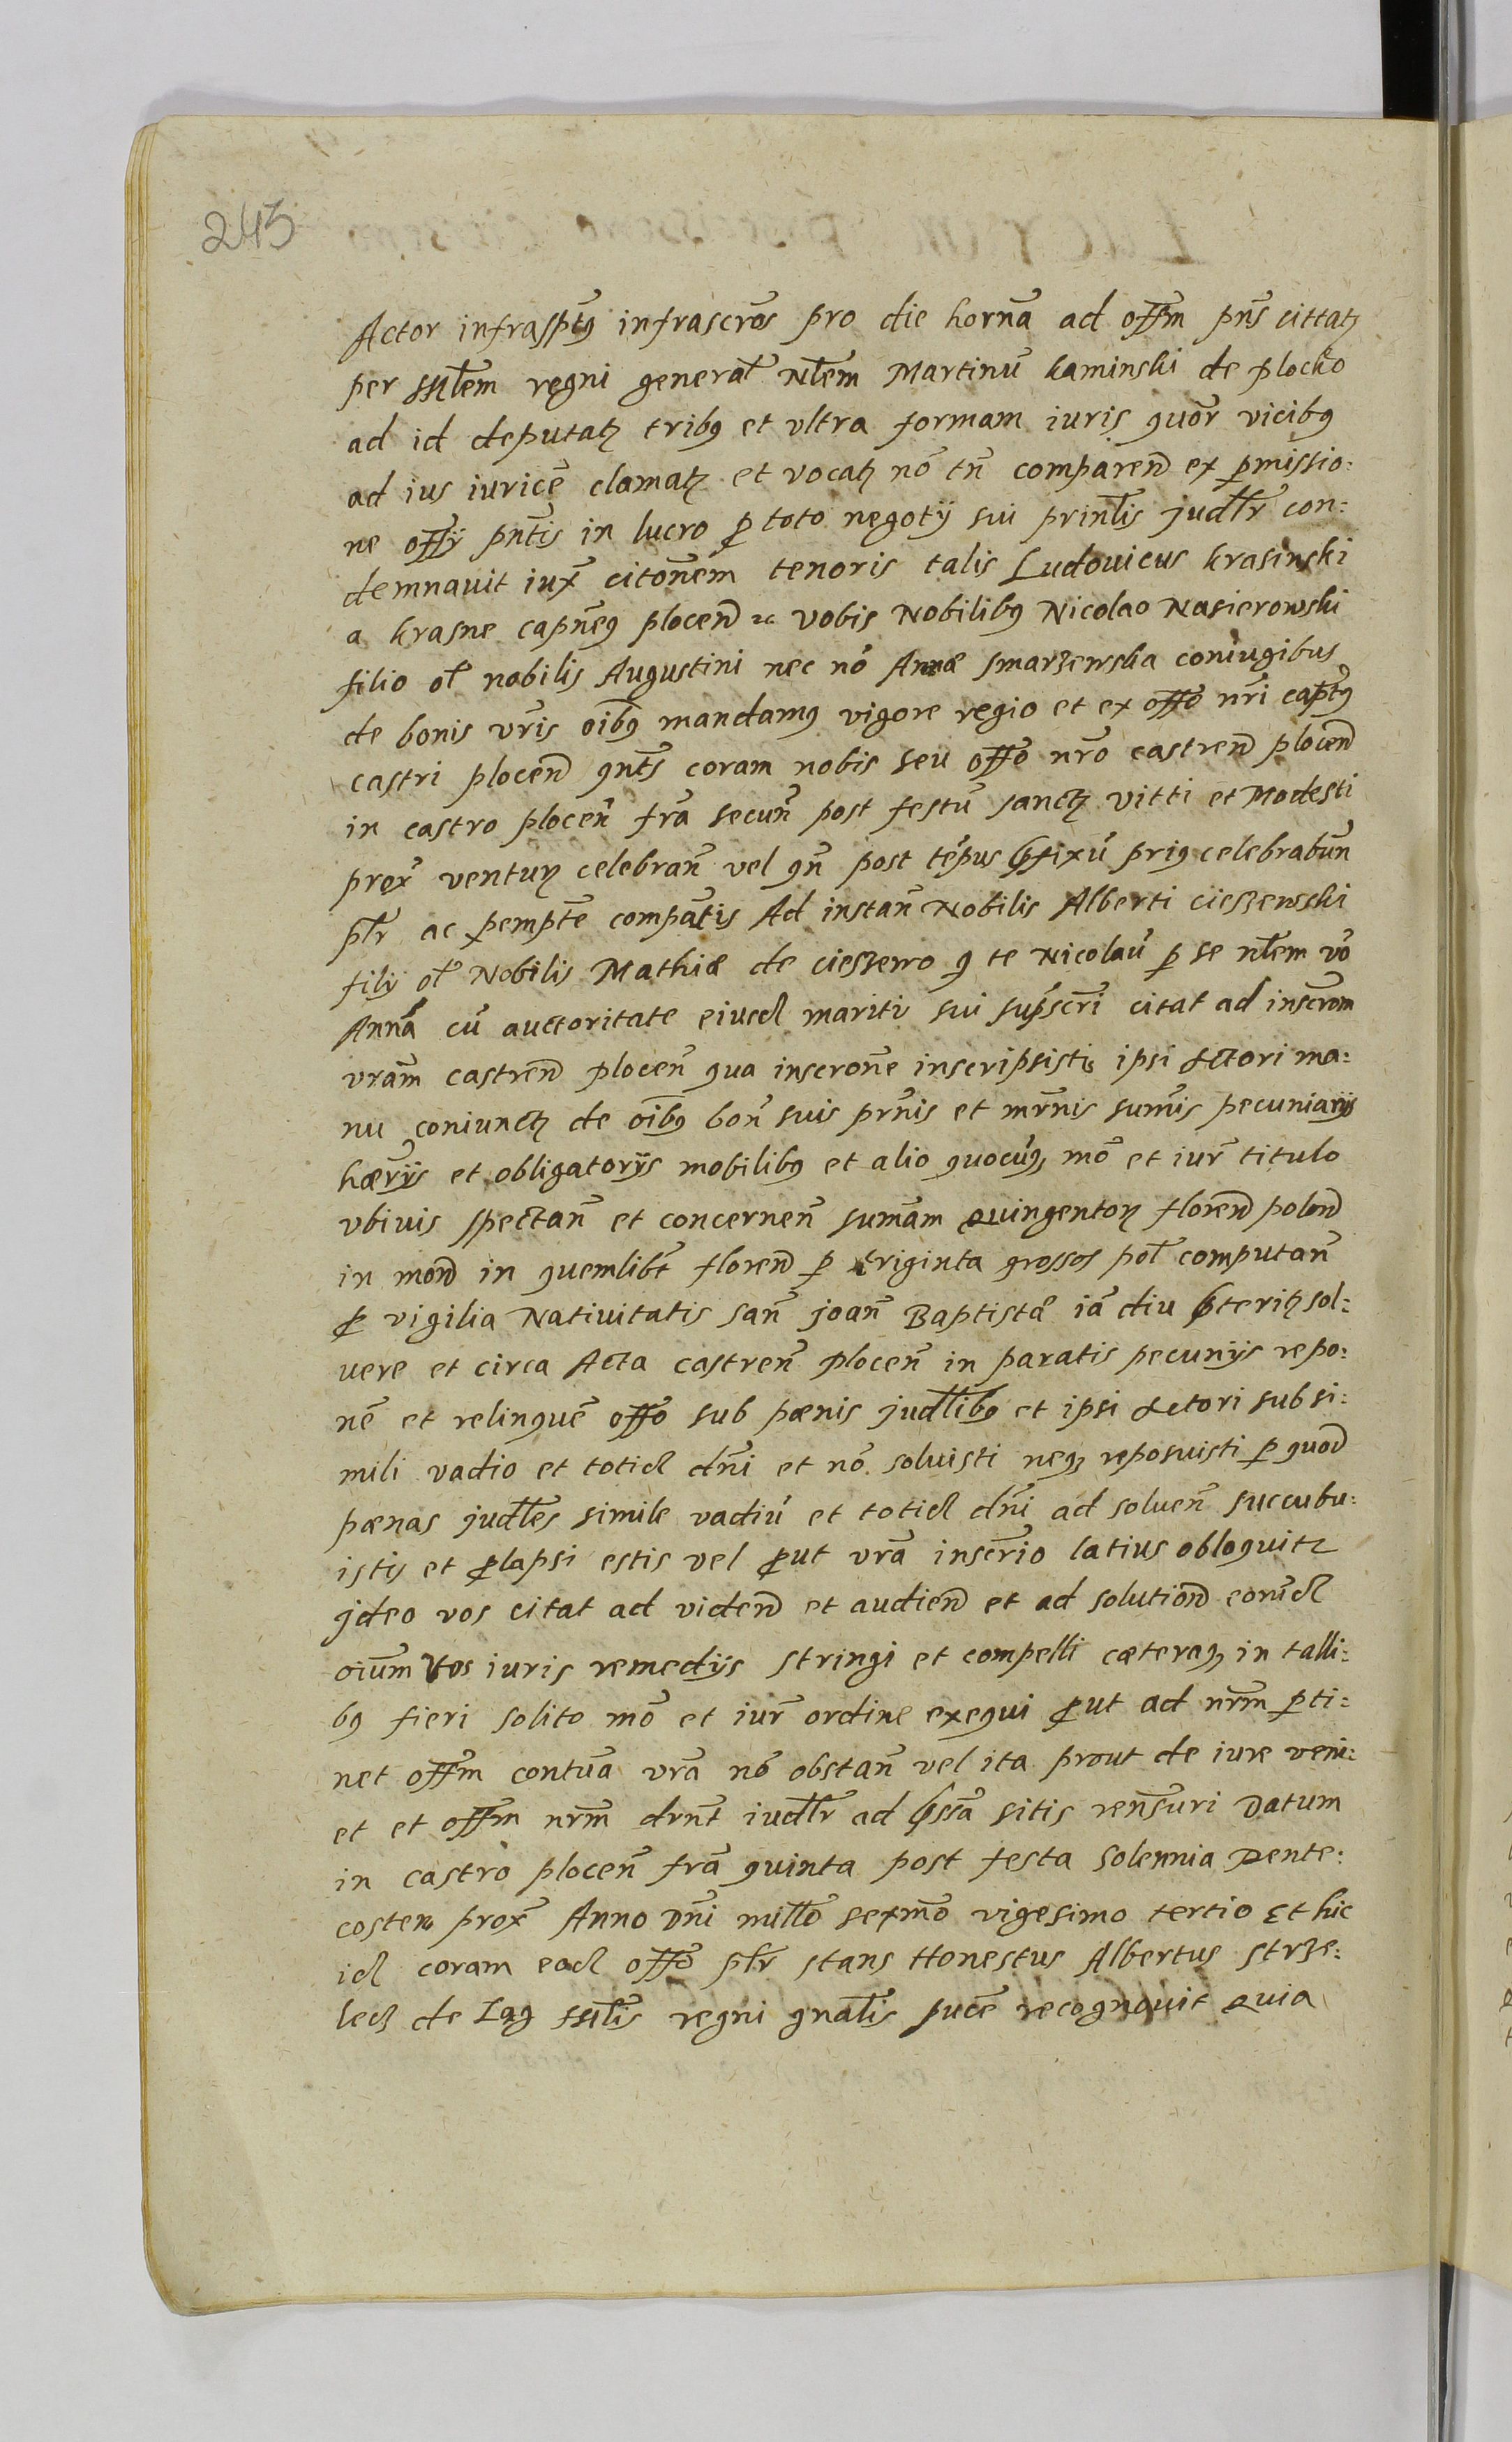 245
Actor infrasptus infrascros pro die horna ad offm pns cittatz
per Mlem regni general Nlem Martinu Kaminski de plocko
ad id deputatz tribus et vltra formam iuris quor vicibus
ad ius iurice clamatz et vocatz no tn comparen ex pmissio:
ne offy pntis in lucro p toto negoty sui prinlis judlr con:
demnauit iux citonem tenoris talis Ludouicus Krasinski
a Krasne capneus plocen vobis Nobilibus Nicolao Nasierowski
filio ol nobilis Augustini nec no Annæ Smarzewska coniugibus
de bonis vris oibus mandamus vigore regio et ex offo nri captus
castri plocen qnts coram nobis seu offo nro castren plocen
in castro plocen fra secun post festu sanctz vitti et Modesti
prox ventur celebran vel qn post tepus pfixu prius celebrabun
plr ac pempte compatis Ad instan Nobilis Alberti Cieszewski
fily ol Nobilis Mathiæ de Cieszewo q te Nicolau p se nlem vo
Anna cu auctoritate eiusd mariti sui supscri citat ad inscrom
vram castren plocen qua inscrone inscripsistis ipsi Actori ma:
nu coniunctz de oibus bon suis prnis et mrnis sumis pecuniarijs
hærijs et obligatorijs mobilibus et alio quocuq mo et iur titulo
vbiuis spectan et concernen sumam Quingentor floren polon
in mon in quemlibt floren p triginta grossos pol computan
p vigilia Natiuitatis san Joan Baptistæ ia diu pteritz sol:
uere et circa Acta castren plocen in paratis pecunijs repo:
ne et relinque offo sub pænis judlibus et ipsi Actori sub si:
mili vadio et totid dni et no soluisti neq reposuisti p quod
pænas judles simile vadiu et totid dni ad soluen succubu:
istis et plapsi estis vel put vra inscrio latius obloquitr
jdeo vos citat ad viden et audien et ad solution eorud
oium vos iuris remedijs stringi et compelli cæteraq in talli:
bus fieri solito mo et iur ordine exequi put ad nrm pti:
net offm contua vra no obstan vel ita prout de iure veni:
et et offm nrm drnt iudlr ad pssa sitis rensuri Datum
in castro plocen fra quinta post festa solennia Pente:
costen prox Anno Dni millo sexmo vigesimo tertio Et hic
id coram eod offo plr stans Honestus Albertus Strze:
lecz de Lag Mlis regni gnalis puce recognouit Quia